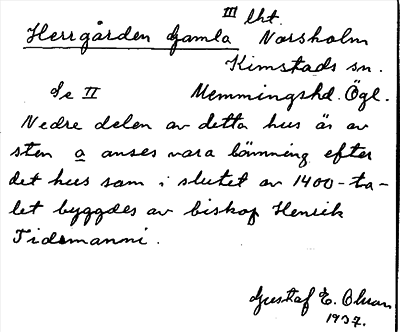 III lht.
Herrgården Gamla Norsholm
Kimstads sn.
Se II Memmingshd. Ögl.
Nedre delen av detta hus är av
sten a anses vara lämning efter
det hus som i slutet av 1400-ta-
let byggdes av biskop Henrik
Tidemanni.
Gustaf E. Olsson
1937.